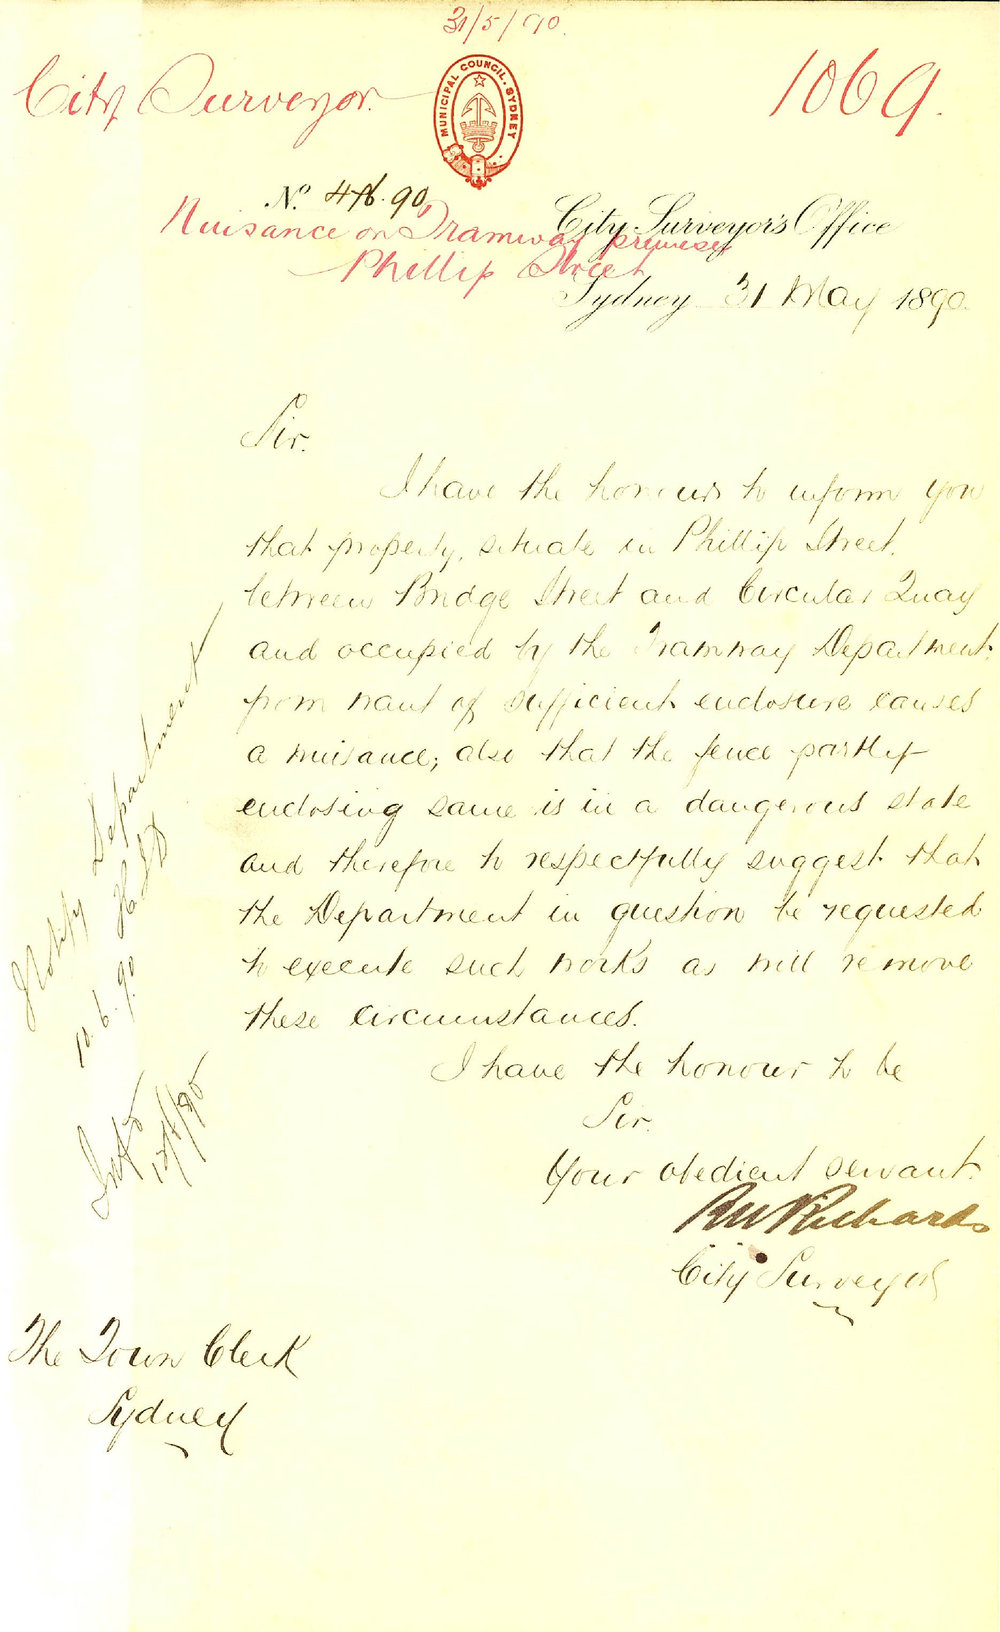 31/5/90.
City Surveyor.
1069.
MUNICIPAL COUNCIL, SYDNEY
No. 90
City Surveyor's Office
Nuisance on Tramway premises
Phillip Street
Sydney 31 May 1890.
Sir.
I have the honour to inform you
that property, situate in Phillip Street,
between Bridge Street and Circular Quay
and occupied by the Tramway Department,
from want of sufficient enclosure causes
a nuisance; also that the fence partly
enclosing same is in a dangerous state
and therefore to respectfully suggest that
the Department in question be requested
to execute such works as will remove
these circumstances.
I have the honour to be
Sir.
Your obedient servant.
RW Richards
City Surveyor
The Town Clerk
Sydney
Notify Department
10.6.90
12/6/90